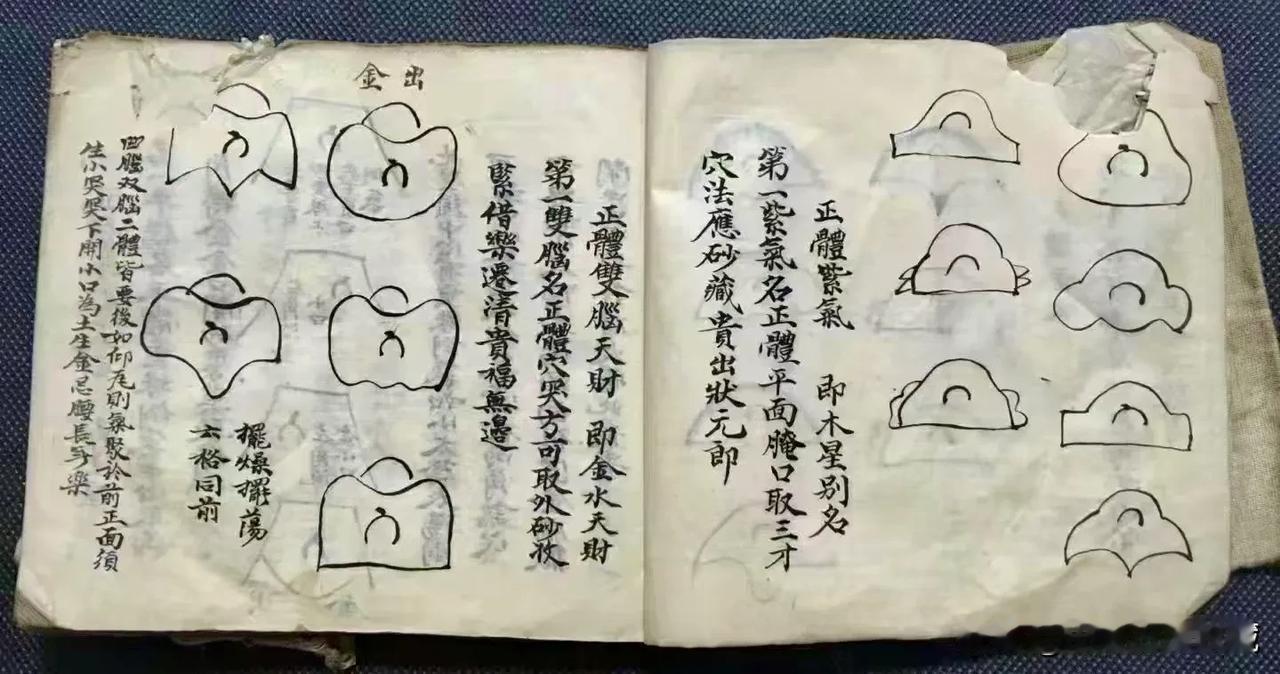 正體紫氣 即木星別名
第一紫氣名正體平面腌口取三才
穴法應砂藏貴出狀元郎
正體雙腦天財 即金水天財
第一雙腦名正體穴突方可取外砂妝
緊借樂遷清貴福無邊
出金
擺燥擺蕩
六格同前
凹腦双腦二體皆要後如仰瓦則氣聚於前正面須
生小突突下開小口為土生金忌腰長身樂